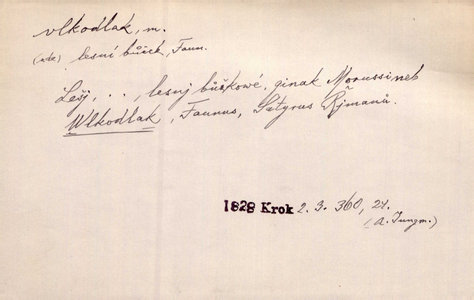 vlkodlak, m.
(zde) lesní bůžek, Faun.
Leýj, . ., lesnj bůžkowé, ginak Morussi neb
Wlkodlak, Faunus, Satyrus Řjmanů.
1828 Krok 2. 3. 360, 21.
(A. Jungm.)